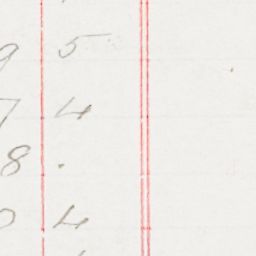 9 5
7 4
8 .
0 4